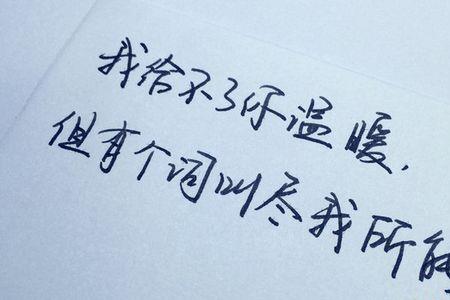 我给不了你温暖,
但有个词叫尽我所能